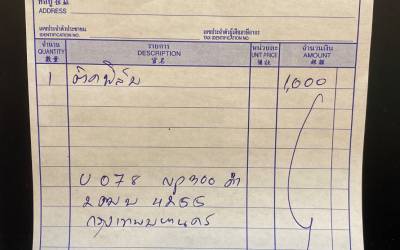 ADDRESS
เลขประจำตัวประชาชน เลขประจำตัวผู้เสียภาษีอากร
IDENTIFICATION NO. TAX IDENTIFICATION NO.
จำนวน รายการ หน่วยละ จำนวนเงิน
QUANTITY DESCRIPTION UNIT PRICE AMOUNT
數量 貨名 價銀
1 ติดฟิล์ม 1,000
U 078 ดำ
4255
กรุงเทพมหานคร